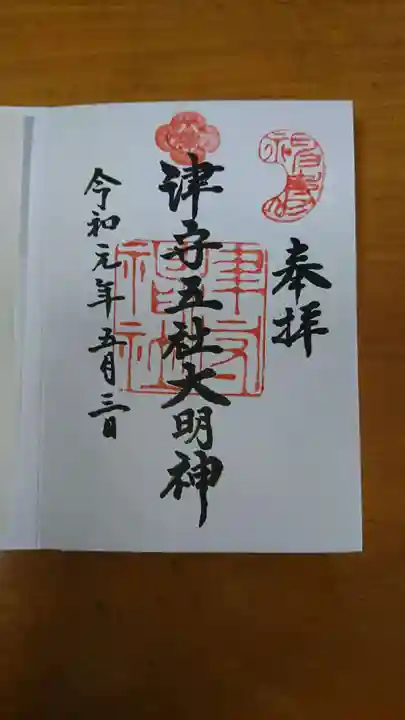 奉拝
津守五社大明神
令和元年五月三日
津守
神社